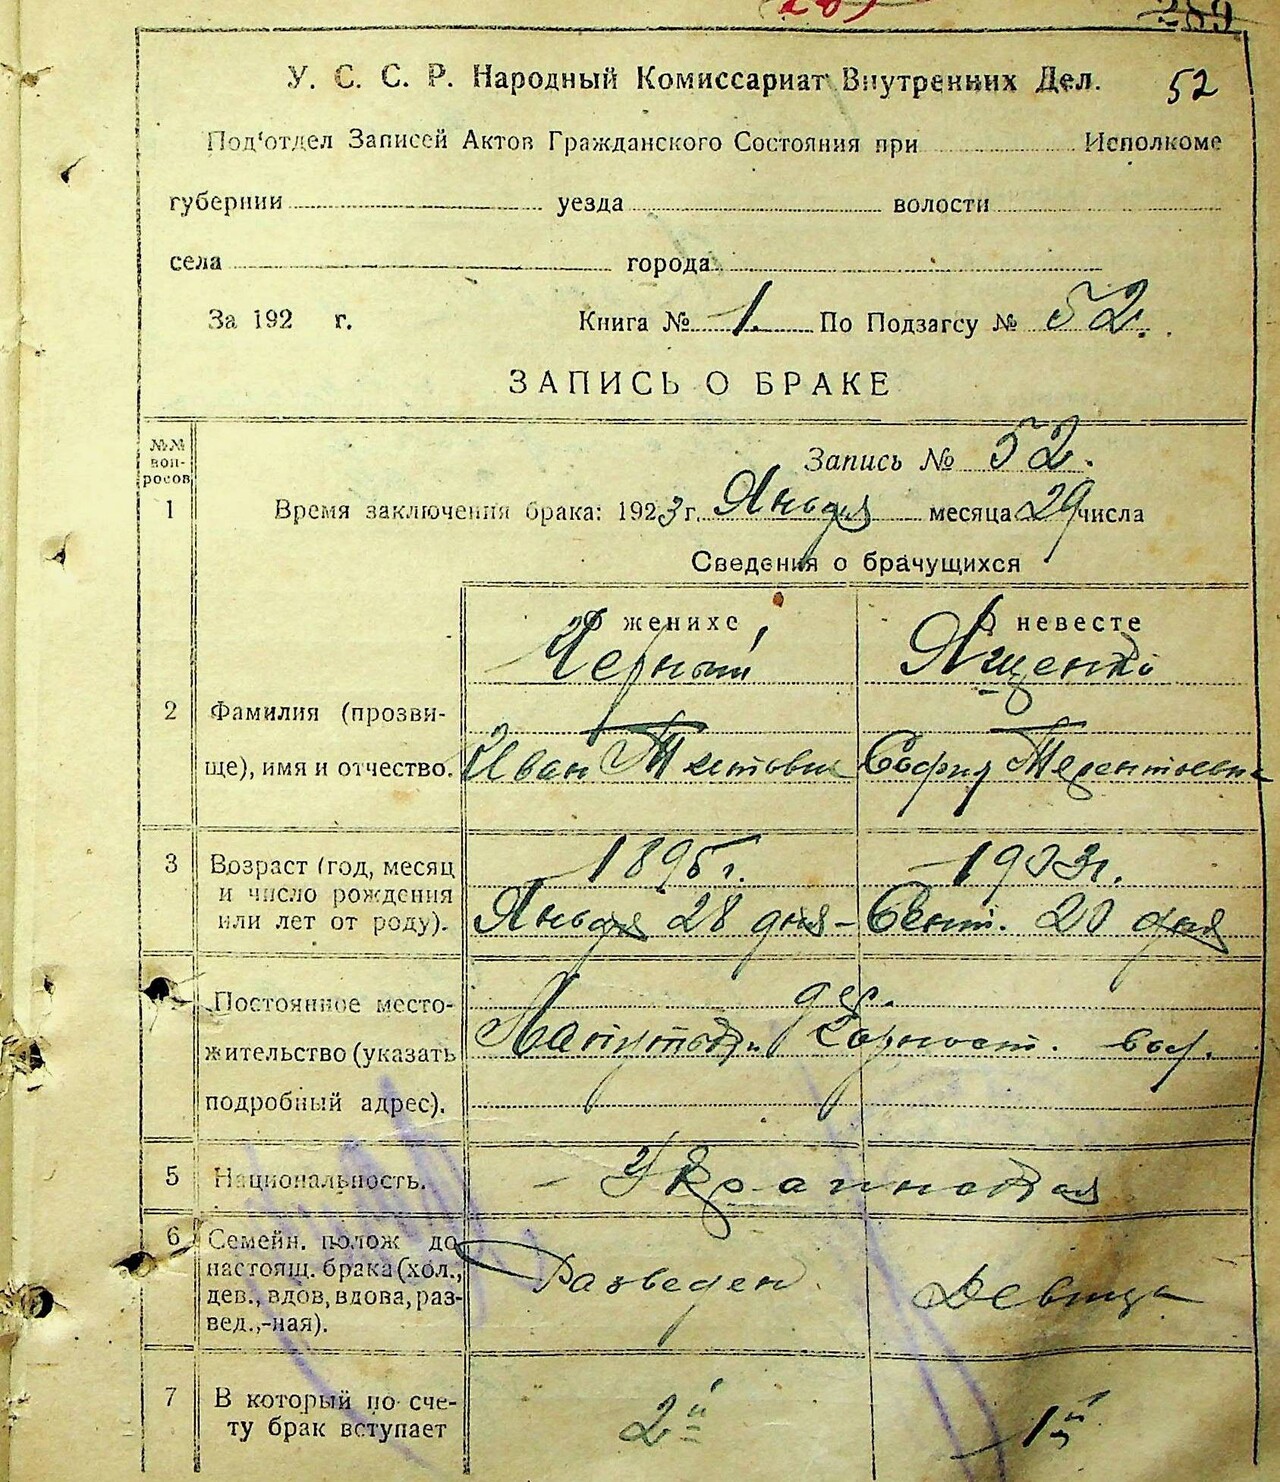 289
У. С. С. Р. Народный Комиссариат Внутренних Дел. 52
Под'отдел Записей Актов Гражданского Состояния при Исполкоме
губернии уезда волости
села города
За 192 г. Книга № 1. По Подзагсу № 52.
ЗАПИСЬ О БРАКЕ
№№ воп-росов
Запись № 52.
1 Время заключения брака: 1923 г. Января месяца 29 числа
Сведения о брачущихся
О женихе О невесте
Черный Ященко
2 Фамилия (прозви-
ще), имя и отчество. Иван Титович София Терентьевна
3 Возраст (год, месяц 1895 г. 1903 г.
и число рождения
или лет от роду). Января 28 дня - Сент. 20 дня
Постоянное место- дер.
жительство (указать вол.
подробный адрес).
5 Национальность. - Украинская
6 Семейн. полож до
настоящ. брака (хол., Разведен. Девица
дев., вдов, вдова, раз-
вед.,-ная).
7 В который по сче- 2й 1й
ту брак вступает